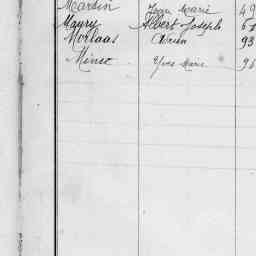 Martin Jean Marie 49
Maury Albert Joseph 6
Morlaas Adrien 93
Minec Yves Marie 96